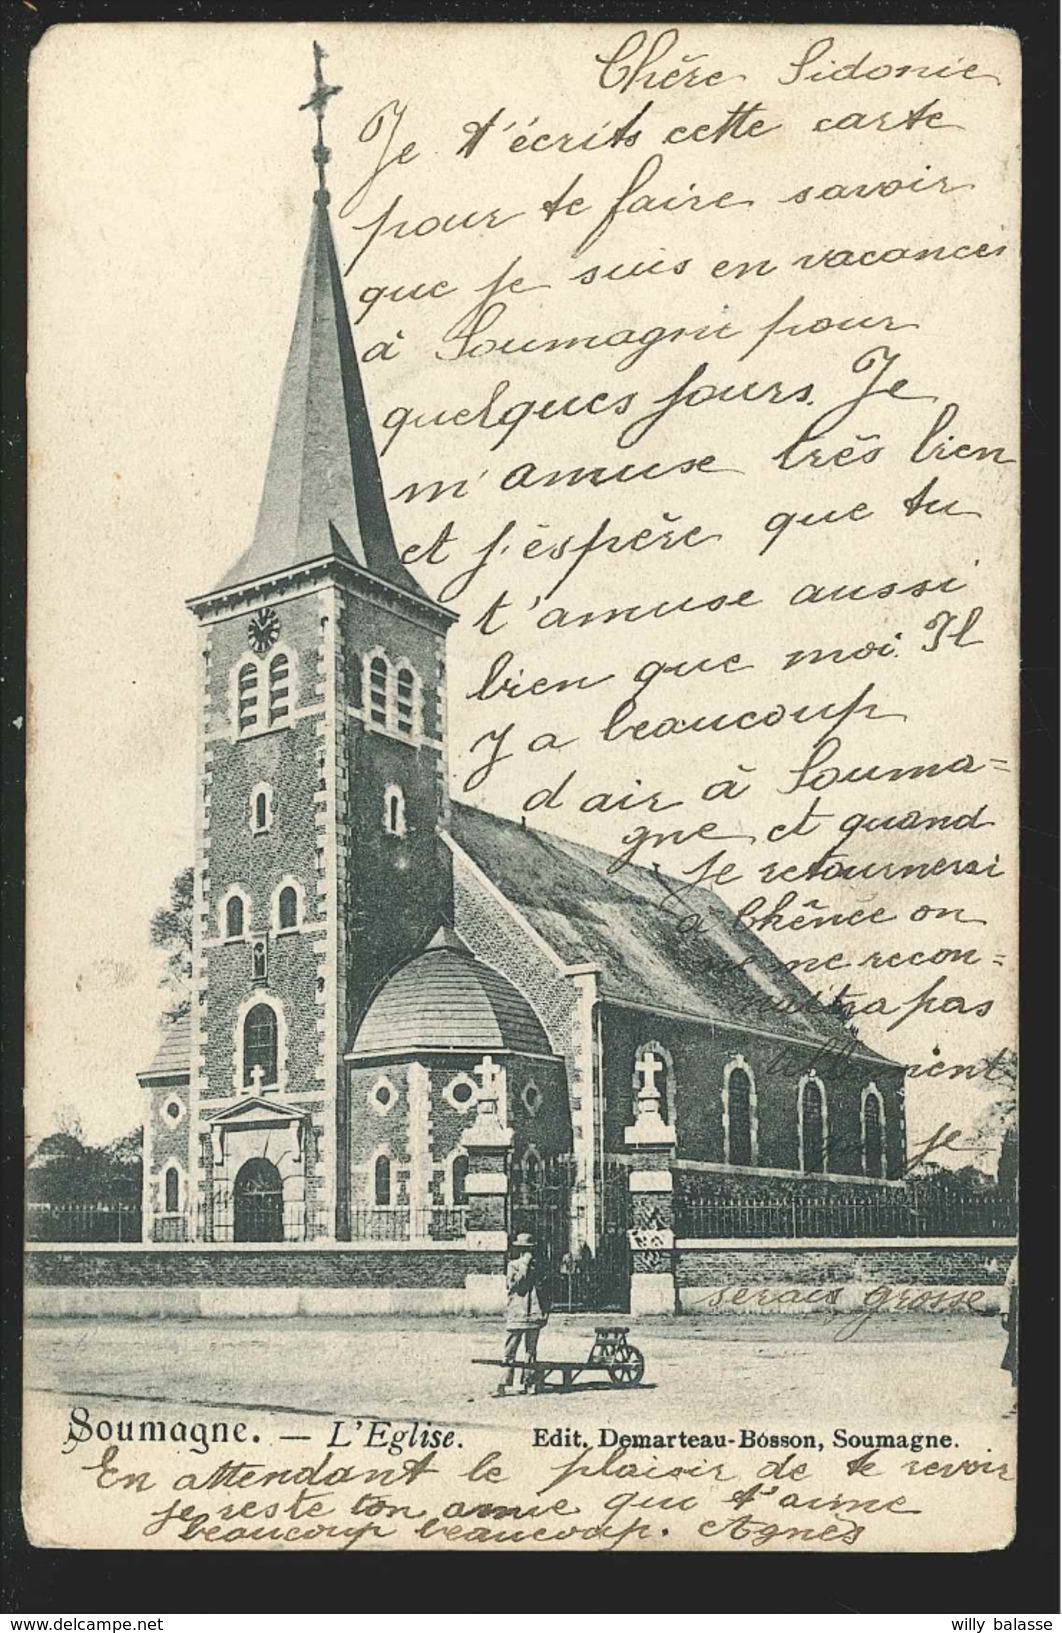 Chère Sidonie
Je t'écrits cette carte
pour te faire savoir
que je suis en vacances
à Soumagne pour
quelques jours. Je
m'amuse très bien
et j'éspère que tu
t'amuse aussi
bien que moi. Il
y a beaucoup
d air à Souma=
gne et quand
je retournerai
à Chênée on
ne me recon=
naitra pas
tellement
que je
serais grosse
Soumagne. — L'Eglise. Edit. Demarteau-Bosson, Soumagne.
En attendant le plaisir de te revoir
je reste ton amie qui t'aime
beaucoup beaucoup. Agnès
delcampe.net
willy balasse